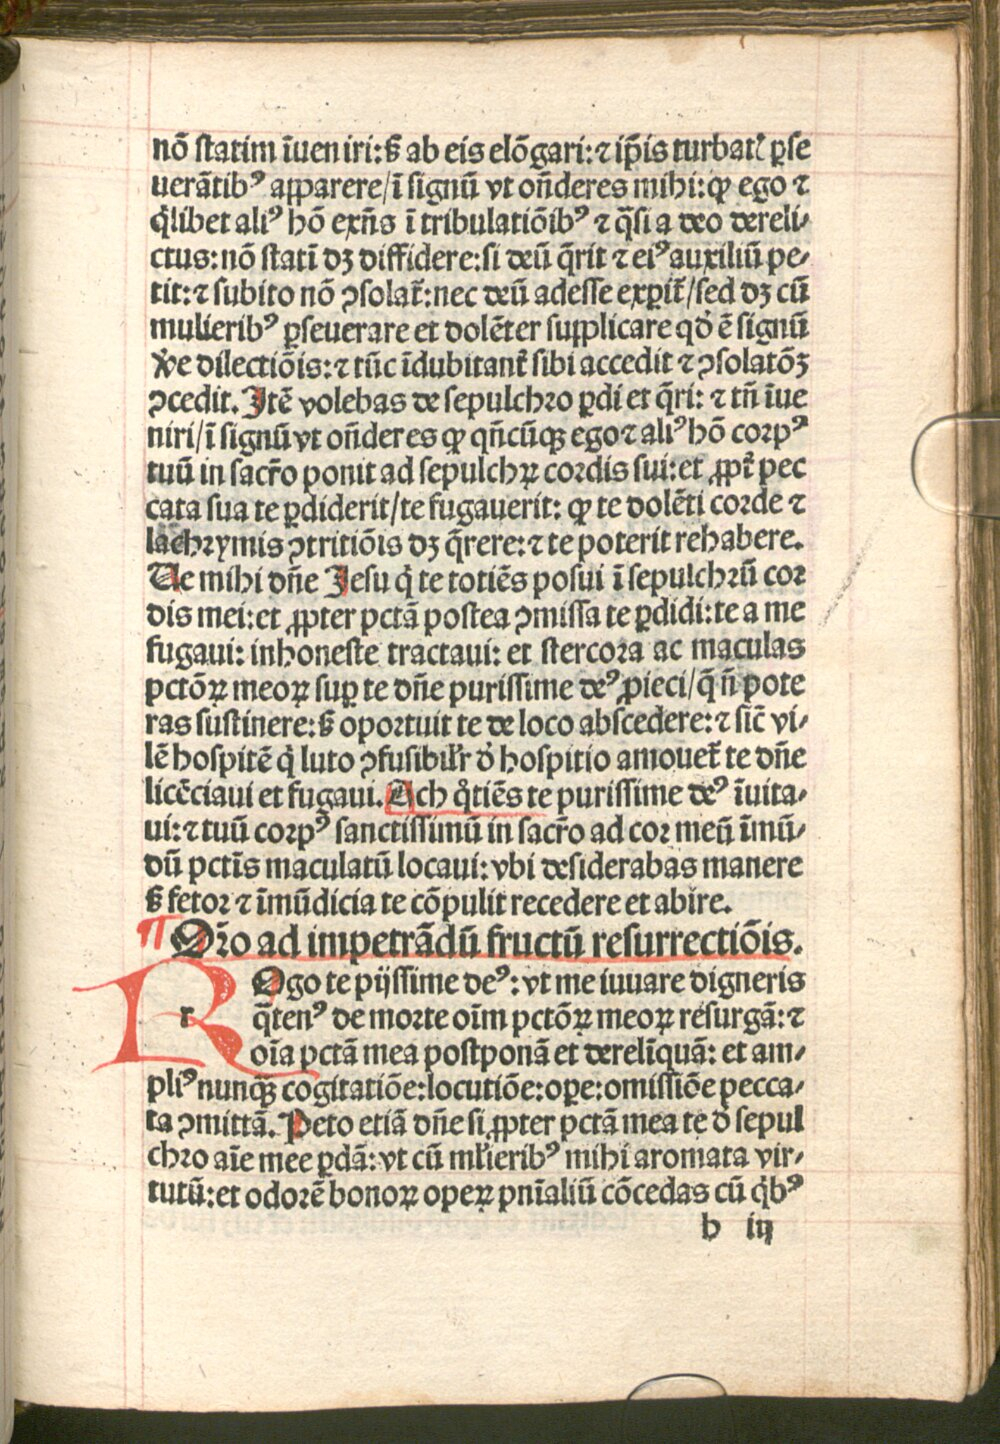 nõ statim ĩueniri:sꝫ ab eis elõgari:⁊ ip̃is turbatꝭ ꝑse
uerãtibꝰ apparere/ĩ signũ vt oñderes mihi:ꝙ ego ⁊
q̃libet aliꝰ hõ exñs ĩ tribulatiõibꝰ ⁊ q̃si a deo dereli⸗
ctus:nõ statĩ dꝫ diffidere:si deũ q̃rit ⁊ eiꝰ auxiliũ pe⸗
tit:⁊ subito nõ ꝯsolat᷑:nec deũ adesse exꝑit᷑/sed dꝫ cũ
mulieribꝰ ꝑseuerare et dolẽter supplicare qđ ẽ signũ
v̾e dilectiõis:⁊ tũc ĩdubitant᷑ sibi accedit ⁊ ꝯsolatõꝫ
ꝯcedit. Itẽ volebas de sepulchro ꝑdi et q̃ri: ⁊ tñ ĩue
niri/ĩ signũ vt oñderes ꝙ qñcũqꝫ ego ⁊ aliꝰ hõ corpꝰ
tuũ in sacr̃o ponit ad sepulchꝝ cordis sui:et ꝓpt᷑ pec
cata sua te ꝑdiderit/te fugauerit: ꝙ te dolẽti corde ⁊
lachrymis ꝯtritiõis dꝫ q̃rere:⁊ te poterit rehabere.
Ue mihi dñe Iesu q̇ te totiẽs posui ĩ sepulchrũ cor
dis mei:et ꝓpter pctã postea ꝯmissa te ꝑdidi:te a me
fugaui: inhoneste tractaui: et stercora ac maculas
pctõꝝ meoꝝ suꝑ te dñe purissime deꝰ ꝓieci/q̃ ñ pote
ras sustinere:sꝫ oportuit te de loco abscedere:⁊ sic̃ vi⸗
lẽ hospitẽ q̇ luto ꝯfusibilr̃ đ hospitio amouet᷑ te dñe
licẽciaui et fugaui. Ach q̊tiẽs te purissime deꝰ ĩuita⸗
ui:⁊ tuũ corpꝰ sanctissimũ in sacr̃o ad cor meũ ĩmũ⸗
dũ pctĩs maculatũ locaui:vbi desiderabas manere
sꝫ fetor ⁊ ĩmũdicia te cõpulit recedere et abire.
¶ Or̃o ad impetrãdũ fructũ resurrectiõis.
ROgo te pijssime deꝰ: vt me iuuare digneris
q̃tenꝰ de morte oĩm pctõꝝ meoꝝ resurgã:⁊
oĩa pctã mea postponã et derelĩquã: et am⸗
pliꝰ nunqꝫ cogitatiõe:locutiõe:oꝑe:omissiõe pecca⸗
ta ꝯmittã. Peto etiã dñe si ꝓpter pctã mea te đ sepul
chro aĩe mee ꝑdã:vt cũ ml̃ieribꝰ mihi aromata vir⸗
tutũ:et odorẽ bonoꝝ opeꝝ pnĩaliũ cõcedas cũ q̇bꝰ
b iij